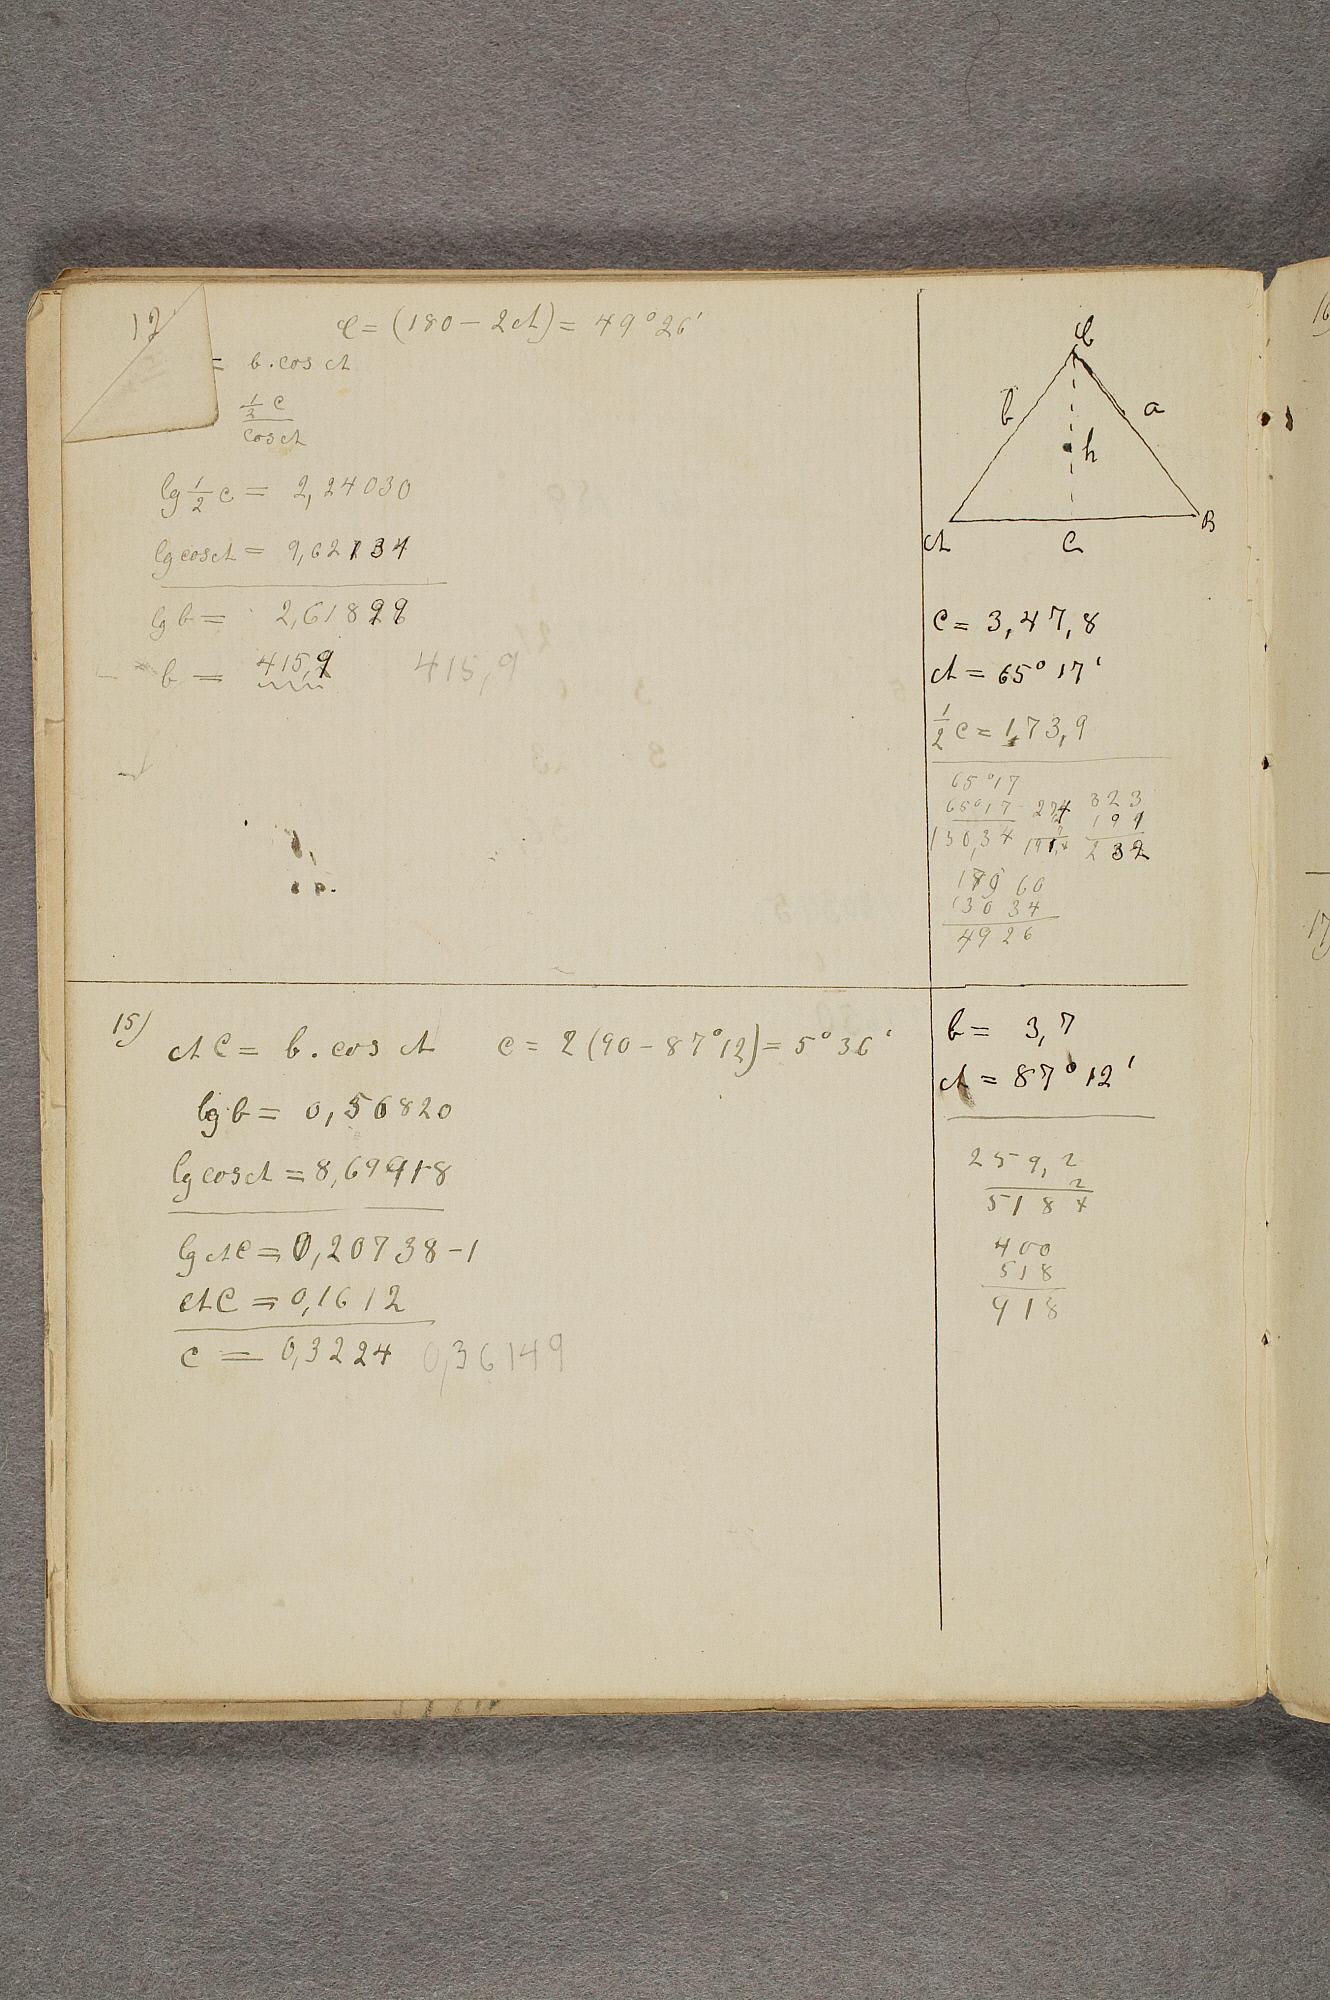 12
C = (180 - 2A) = 49° 26'
= b . cos A
½ c
cos A
lg ½ c = 2,24030
lg cos A = 9,62134
lg b = 2,61899
b = 415,9 415,9
C
b a
h
A c B
c = 3,47,8
A = 65° 17'
½ c = 1,73,9
65°17
65°17 274 323
130,34 191,8 232
179 60
130 34
49 26
15)
A C = b . cos A c = 2 (90 - 87°12) = 5° 36'
lg b = 0,56820
lg cos A = 8,69918
lg A C = 0,20738 - 1
A C = 0,1612
c = 0,3224 0,36149
b = 3,7
A = 87° 12'
259,2
2
518 4
400
518
918
16)
17)